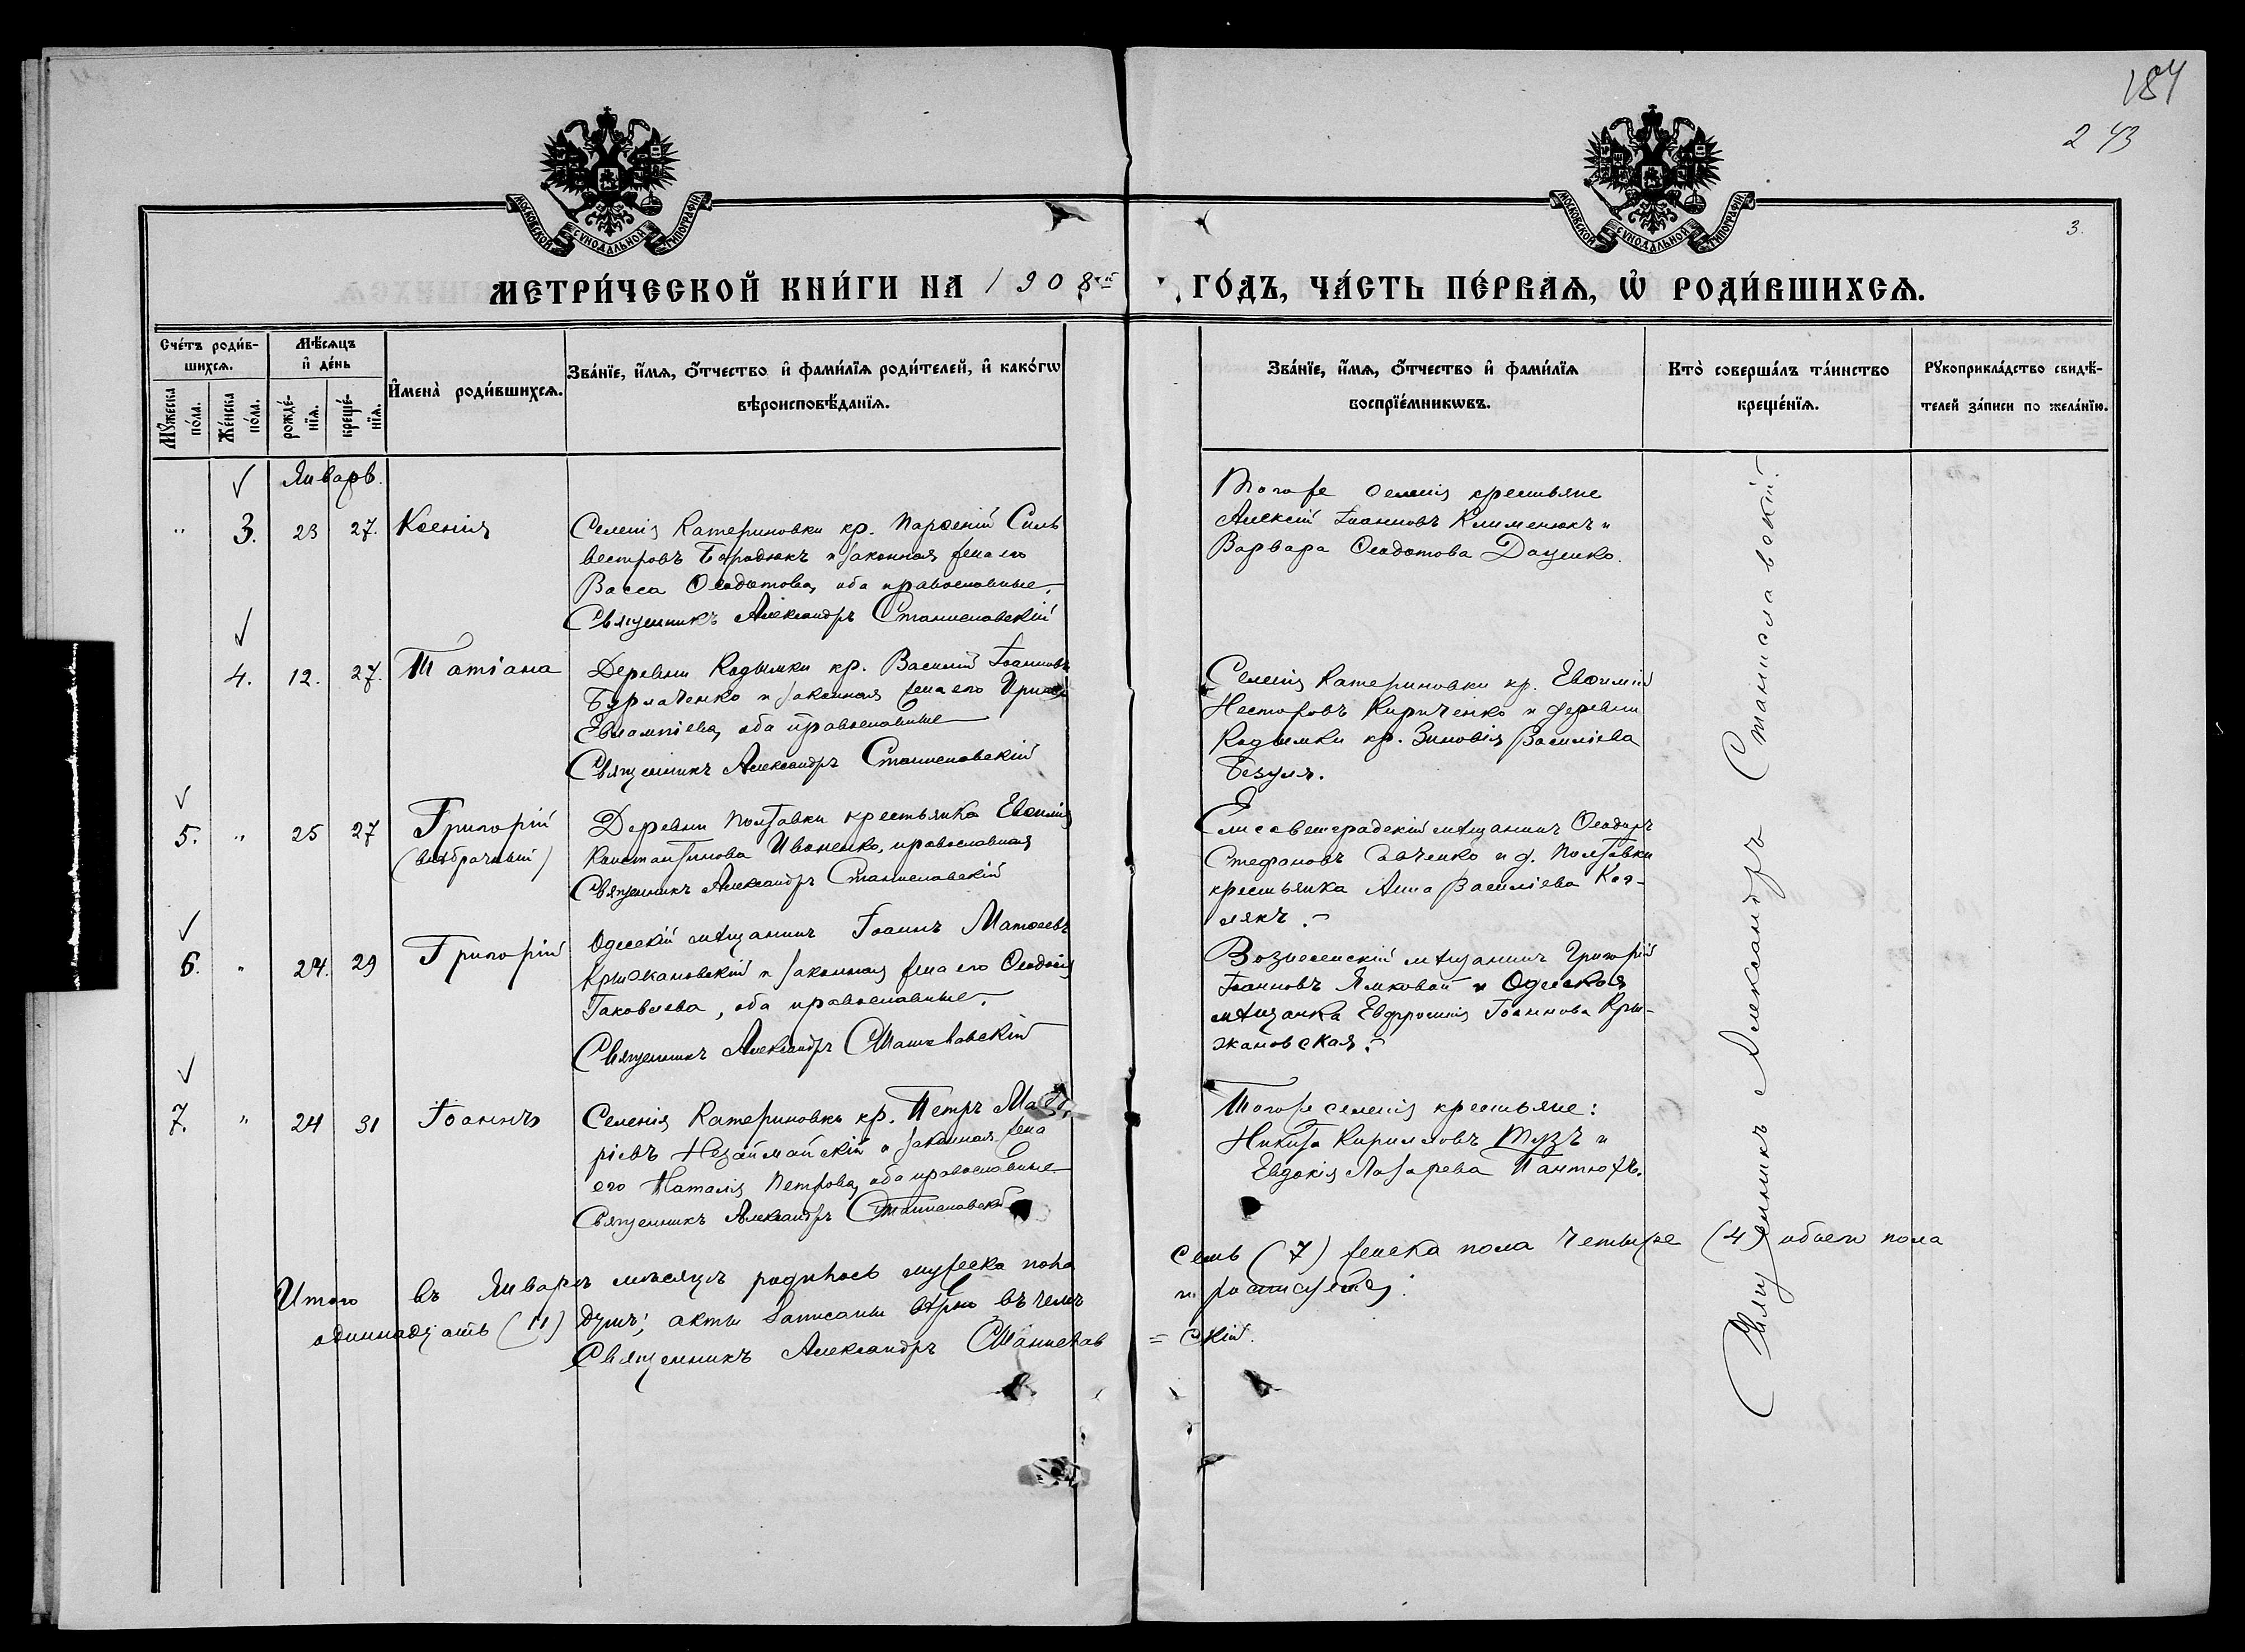 184
2 43
3.
МОСКОВСКОЙ СѴНОДАЛЬНОЙ ТИПОГРАФІИ
МОСКОВСКОЙ СѴНОДАЛЬНОЙ ТИПОГРАФІИ
МЕТРИ́ЧЕСКОЙ КНИ́ГИ НА 1908й
ГО́ДЪ, ЧА́СТЬ ПЕ́РВАѦ, Ѡ҆ РОДИ́ВШИХСѦ.
Сче́тъ роди́в-
шихсѧ.
Мꙋ́жеска по́ла.
Же́нска по́ла.
Мѣ́сѧцъ
и҆ де́нь
рожде́-
нїѧ.
креще́-
нїѧ.
И҆мена̀ роди́вшихсѧ.
Зва́нїе, и҆́мѧ, ѻ҆́тчество и҆ фами́лїѧ роди́телей, и҆ како́гѡ
вѣроисповѣ́данїѧ.
Зва́нїе, и҆́мѧ, ѻ҆́тчество и҆ фами́лїѧ
воспрїе́мникѡвъ.
Кто̀ соверша́лъ та́инство
креще́нїѧ.
Рꙋкоприкла́дство свидѣ́-
телей за́писи по жела́нїю.
Январь.
" 3. 23 27. Ксенія
Селенія Катериновки кр. Парѳеній Силь
вестровъ Бородюкъ и законная жена его
Васса Ѳеодотова, оба православные.
Священникъ Александръ Станиславскій
Тогоже селенія крестьяне
Алексій Іоанновъ Клименюкъ и
Варвара Ѳеодотова Даценко.
4. 12. 27. Татіана
Деревни Кодымки кр. Василій Іоанновъ
Бурлаченко и законная жена его Ирина
Евлампіева, оба православные
Священникъ Александръ Станиславскій
Селенія Катериновки кр. Евѳимій
Несторовъ Кириченко и деревни
Кодымки кр. Зиновія Василіева
Безуля.
5. " 25 27 Григорій
(внѣбрачный)
Деревни Полтавки крестьянка Евѳимія
Константинова Ивоненко, православная
Священникъ Александръ Станиславскій
Елисаветградскій мѣщанинъ Ѳеодоръ
Стефановъ Савченко и д. Полтавки
крестьянка Анна Василіева Кол-
лякъ.
6. " 24. 29 Григорій
Одесскій мѣщанинъ Іоаннъ Матѳеевъ
Крыжановскій и законная жена его Ѳеодосія
Іаковлева, оба православные.
Священникъ Александръ Станиславскій
Вознесенскій мѣщанинъ Григорій
Іоанновъ Ямковой и Одесская
мѣщанка Евфросинія Іоаннова Кры-
жановская.
7. " 24 31 Іоаннъ
Селенія Катериновки кр. Петръ
ріевъ Незаймайскій и законная жена
его Наталія Петрова, оба православные
Священникъ Александръ Станиславскій
Тогоже селенія крестьяне:
Никита Кирилловъ Тузъ и
Евдокія Лазарева Пантюхъ.
Священникъ Александръ Станиславскій.
Итого въ Январѣ мѣсяцѣ родилось мужеска пола
семь (7) женска пола четыре (4) обоего пола
одиннадцать (11) душъ; акты записаны вѣрно въ чемъ
и росписуемся:
Священникъ Александръ Станислав
= скій.